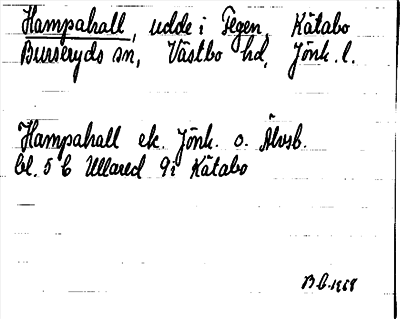 Hampahall, udde i Fegen, Kåtabo
Burseryds sn, Västbo hd, Jönk. l.
Hampahall ek. Jönk. o. Älvsb.
bl. 5 C Ullared 9i Kåtabo
B C. 1968